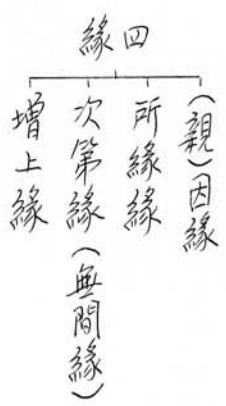 四緣
（親）因緣
所緣緣
次第緣（無間緣）
增上緣